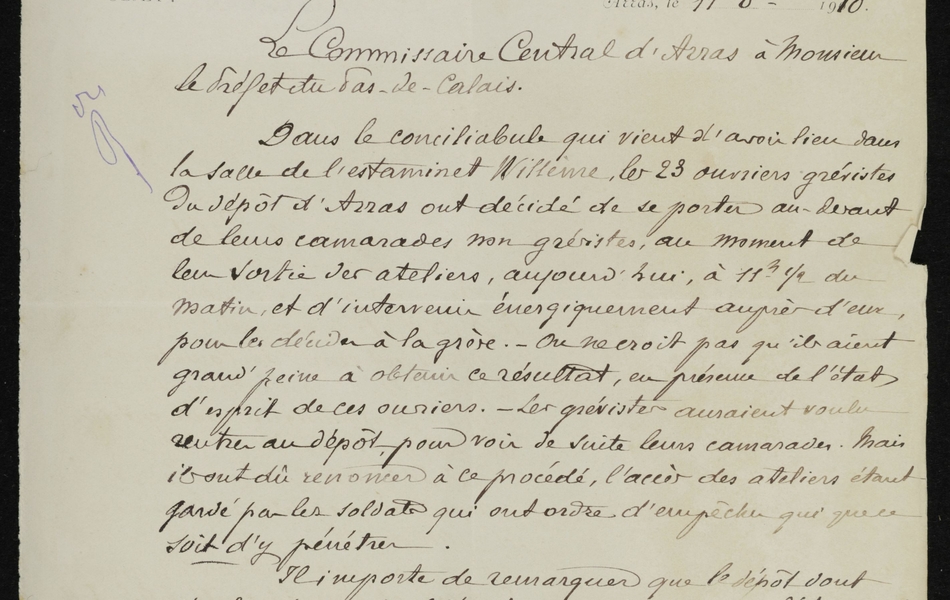 Arras, le 11 1910.
Le Commissaire Central d'Arras à Monsieur
le Préfet du Pas-de-Calais.
Dans le conciliabule qui vient d'avoir lieu dans
la salle de l'estaminet Willème, les 23 ouvriers grévistes
du dépôt d'Arras ont décidé de se porter au-devant
de leurs camarades non grévistes, au moment de
leur sortie des ateliers, aujourd'hui, à 11h 1/2 du
matin, et d'intervenir énergiquement auprès d'eux,
pour les décider à la grève. - On ne croit pas qu'ils aient
grand' peine à obtenir ce résultat, en présence de l'état
d'esprit de ces ouvriers. - Les grévistes auraient voulu
rentrer au dépôt, pour voir de suite leurs camarades. Mais
ils ont dû renoncer à ce procédé, l'accès des ateliers étant
gardé par les soldats qui ont ordre d'empêcher qui que ce
soit d'y pénétrer.
Il importe de remarquer que le dépôt dont